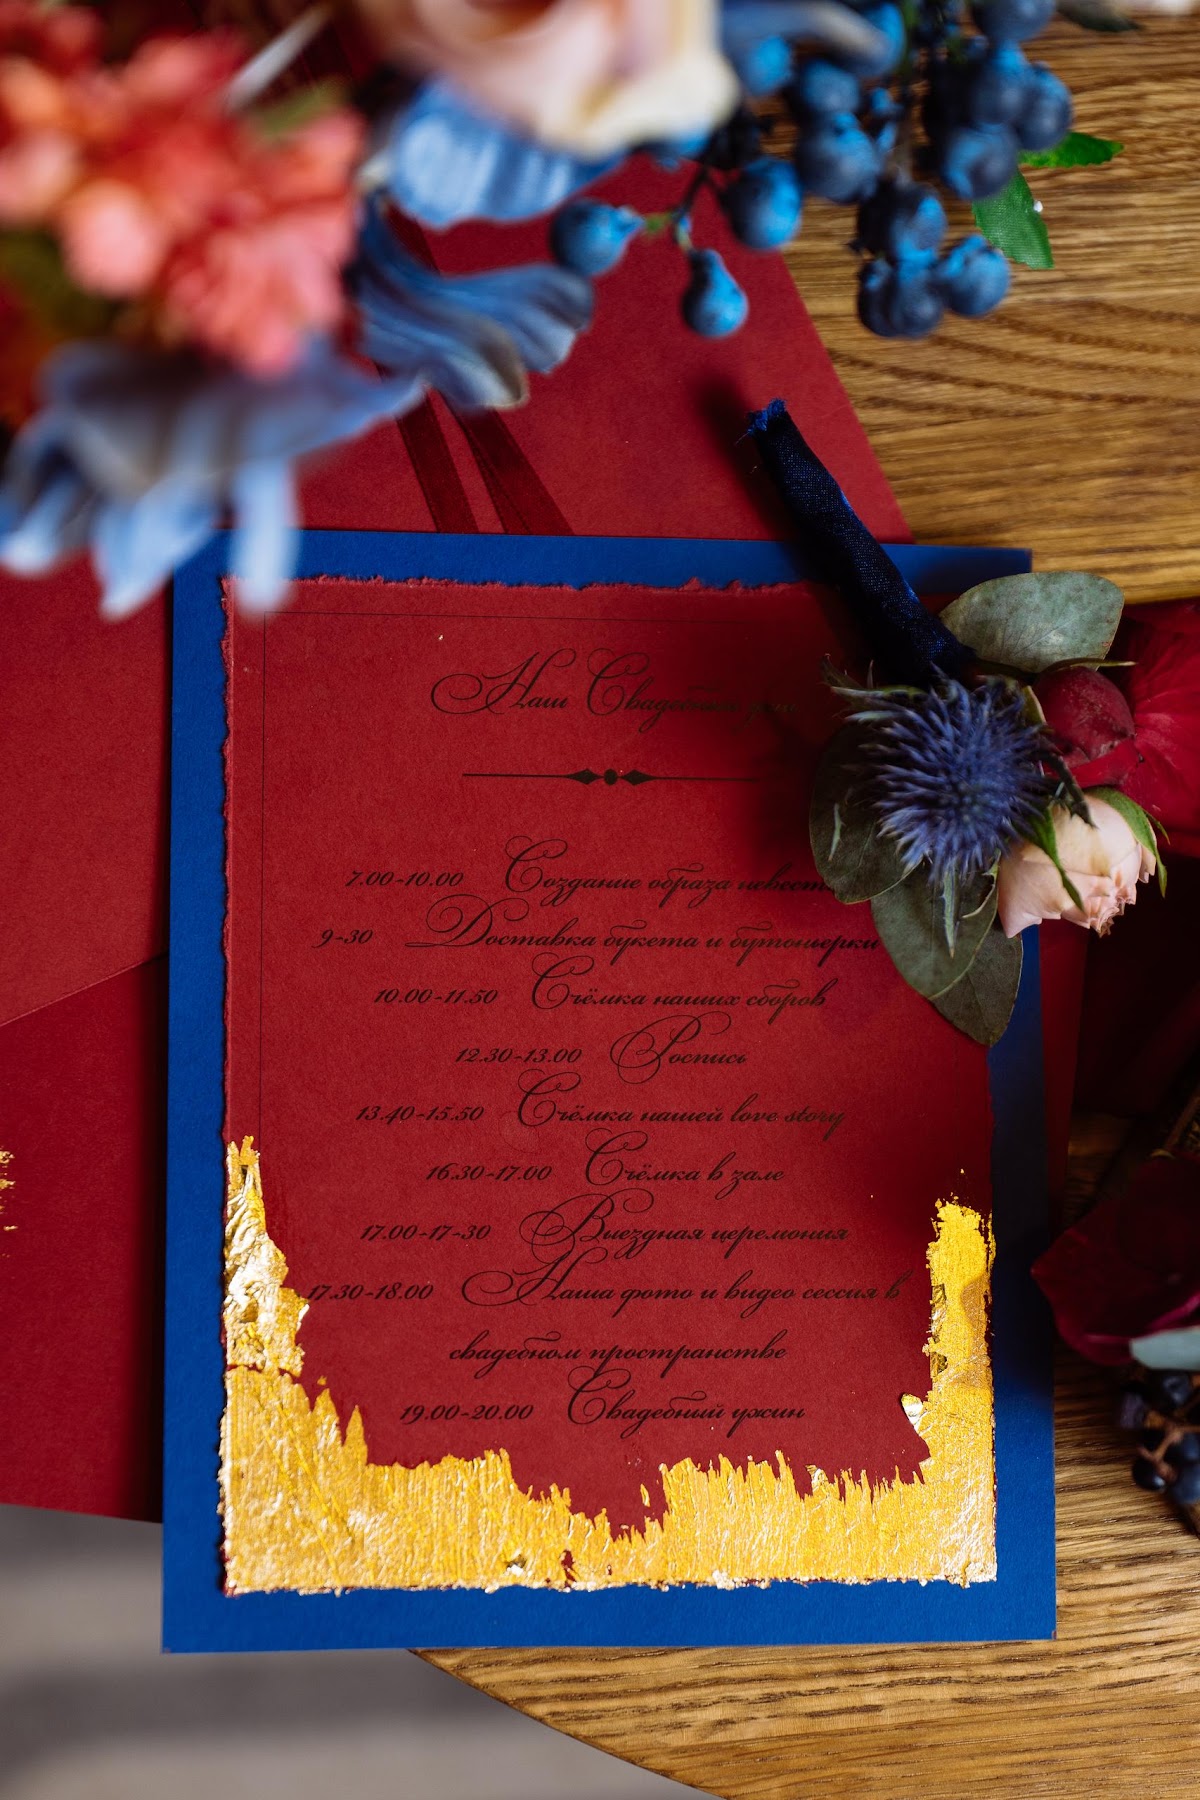 Наш Свадебный день
7.00-10.00 Создание образа невесты
9-30 Доставка букета и бутоньерки
10.00-11.50 Съёмка наших сборов
12.30-13.00 Роспись
13.40-15.50 Съёмка нашей love story
16.30-17.00 Съёмка в зале
17.00-17-30 Выездная церемония
17.30-18.00 Наша фото и видео сессия в
свадебном пространстве
19.00-20.00 Свадебный ужин